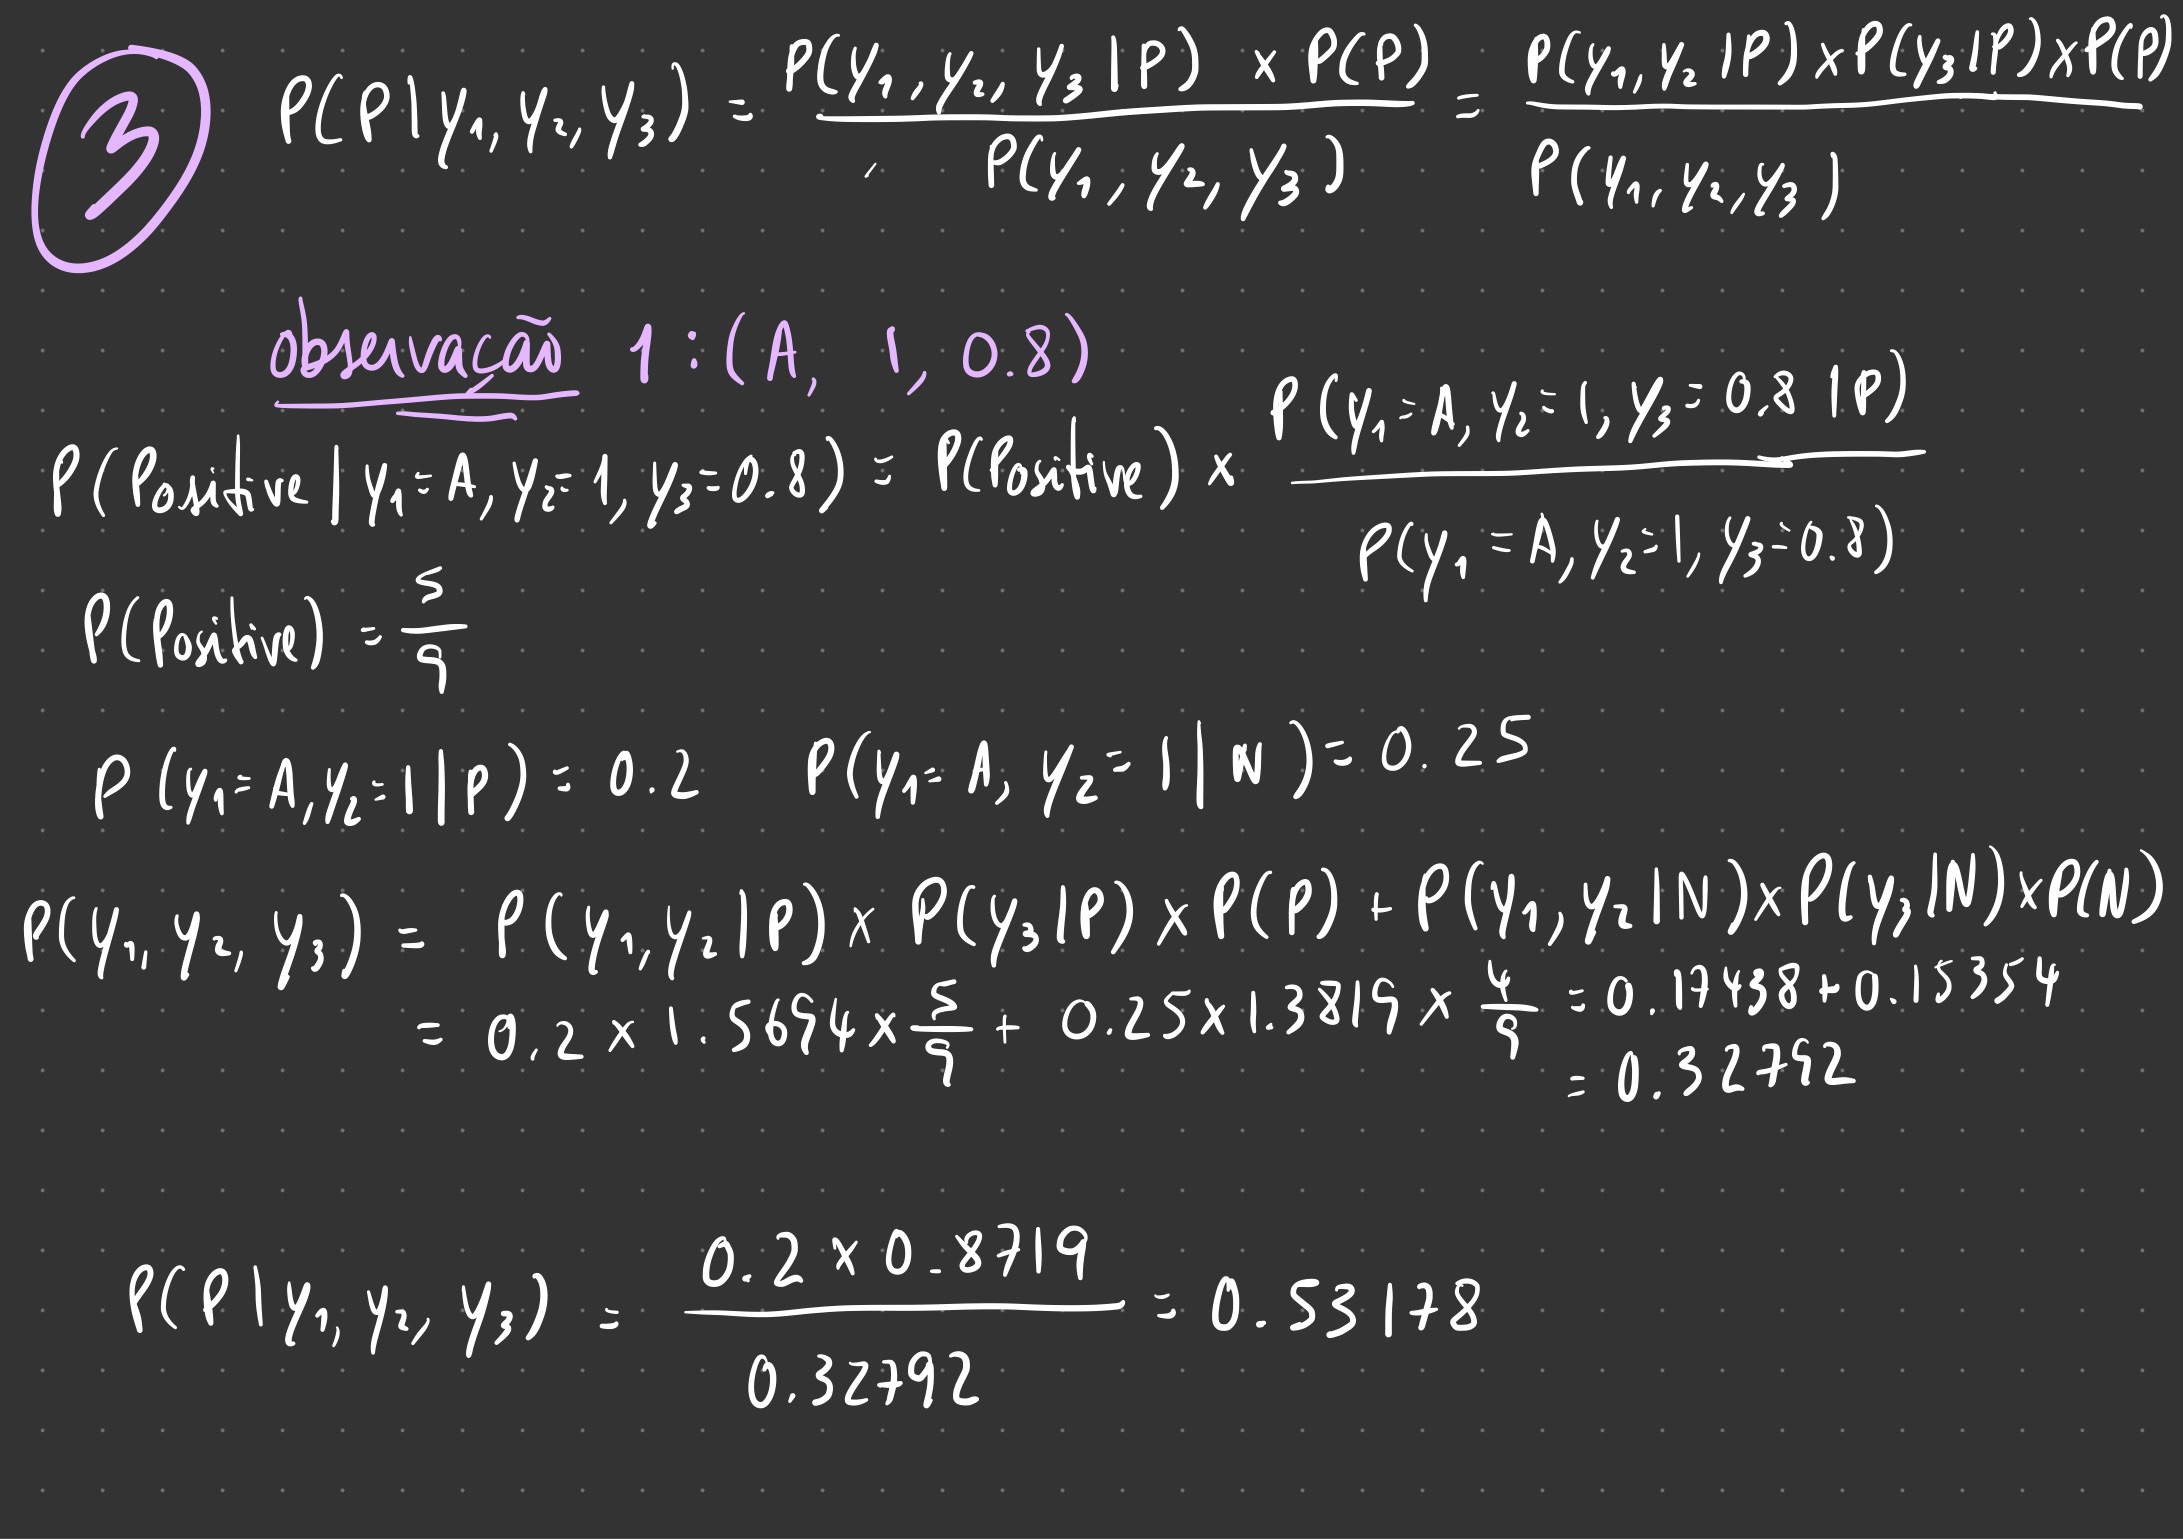 ③ P(P|y₁, y₂, y₃) = P(y₁, y₂, y₃|P) x P(P) / P(y₁, y₂, y₃) = P(y₁, y₂|P) x P(y₃|P) x P(P) / P(y₁, y₂, y₃)
observação 1 : (A, 1, 0.8)
P(Positive | y₁=A, y₂=1, y₃=0.8) = P(Positive) x P(y₁=A, y₂=1, y₃=0.8 |P) / P(y₁=A, y₂=1, y₃=0.8)
P(Positive) = 5/9
P(y₁=A, y₂=1|P) = 0.2 P(y₁=A, y₂=1|N) = 0.25
P(y₁, y₂, y₃) = P(y₁, y₂|P) x P(y₃|P) x P(P) + P(y₁, y₂|N) x P(y₃|N) x P(N)
= 0.2 x 1.5694 x 5/9 + 0.25 x 1.3819 x 4/9 = 0.17438 + 0.15354
= 0.32792
P(P|y₁, y₂, y₃) = 0.2 x 0.8719 / 0.32792 = 0.53178